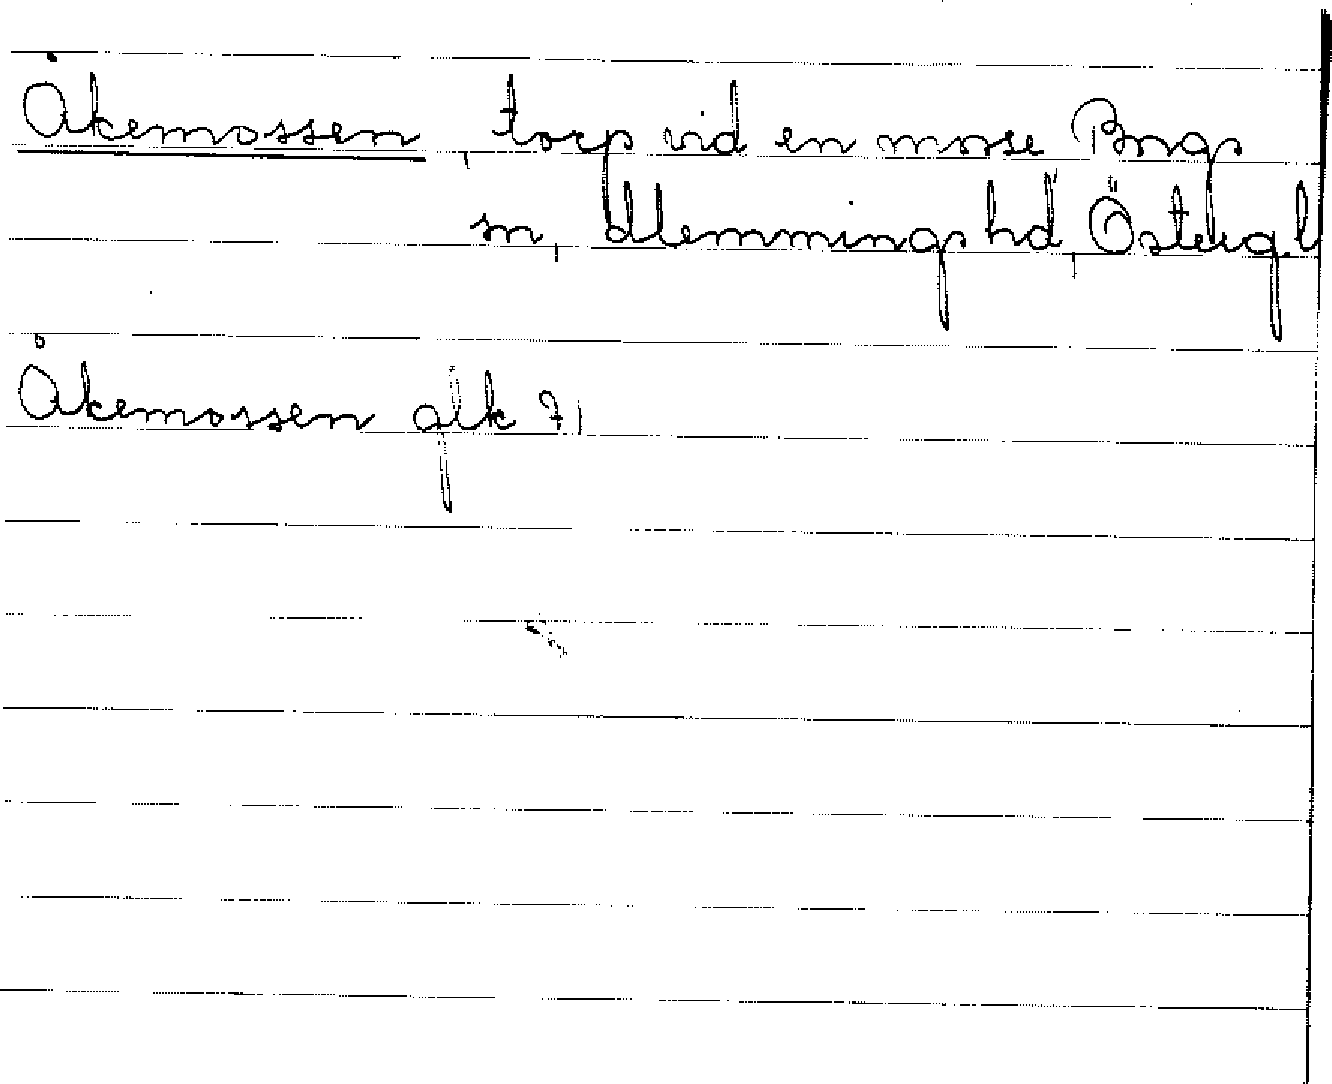 Åkemossen, torp vid en mosse Borgs
sn, Memmings hd, Östergl
Åkemossen glk 71